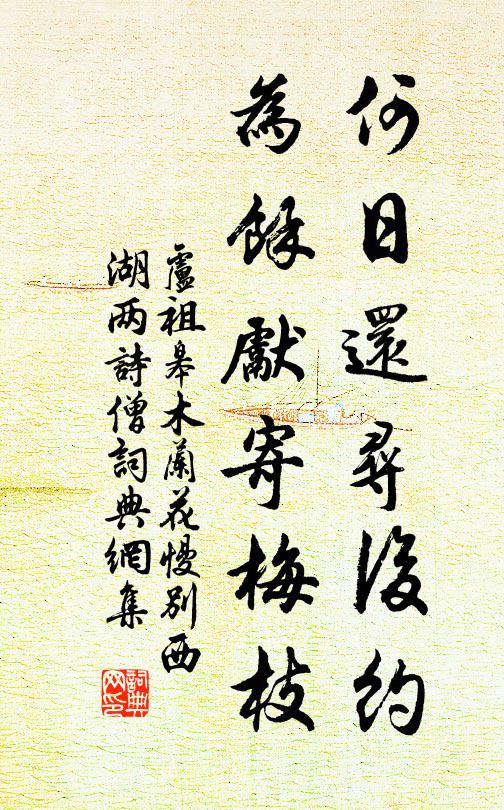 何日還尋後約
為餘獻寄梅枝
盧祖皋木蘭花慢別西
湖两詩僧詞典網集
詞典
网印